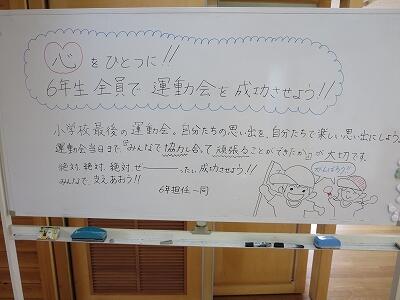 心をひとつに!!
6年生全員で運動会を成功させよう!!
小学校最後の運動会。自分たちの思い出を、自分たちで楽しい思い出にしよう。
運動会当日まで、『みんなで協力し合って頑張ることができたか』が大切です。
絶対、絶対、絶対、ぜーーーーったい、成功させよう!!
みんなで、支えあおう!!
6年担任一同
がんばろう!!